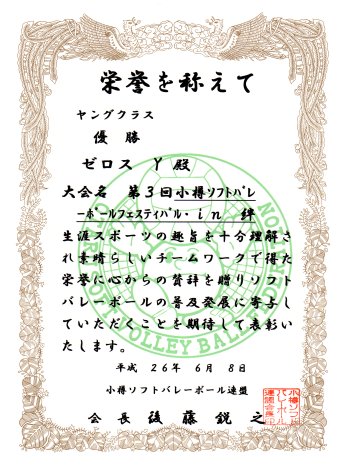 栄誉を称えて
ヤングクラス
優勝
ゼロス Y 殿
大会名 第3回小樽ソフトバレ
ーボールフェスティバル・in 絆
生涯スポーツの趣旨を十分理解さ
れ素晴らしいチームワークで得た
栄誉に心からの賛辞を贈りソフト
バレーボールの普及発展に寄与し
ていただくことを期待して表彰い
たします。
平成 26年 6月 8日
小樽ソフトバレーボール連盟
会長 後藤 鋭之
VOLLEY BALL